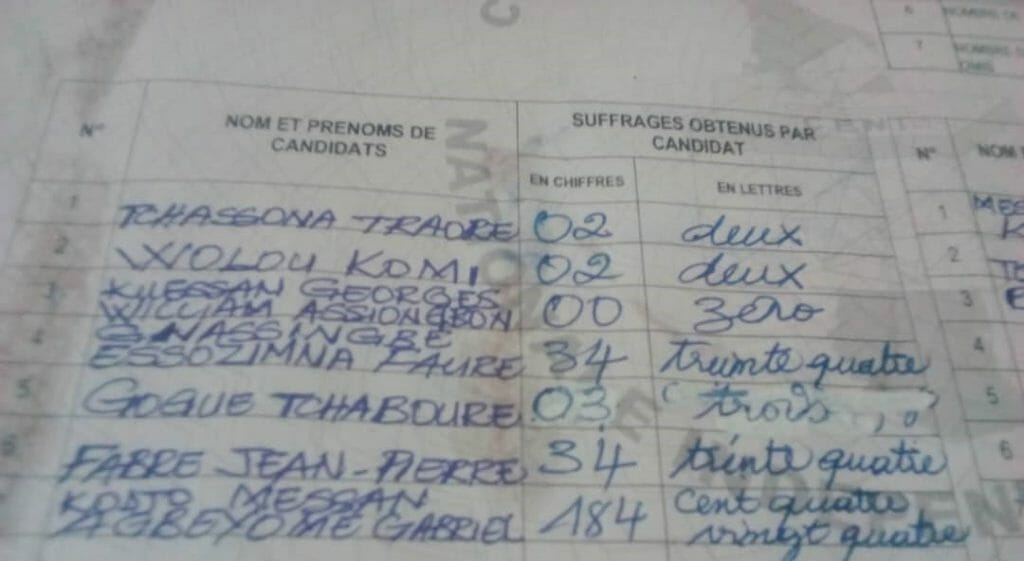 6 NOMBRE DE
7 NOMBRE
N° NOM ET PRENOMS DE CANDIDATS SUFFRAGES OBTENUS PAR CANDIDAT N° NOM
EN CHIFFRES EN LETTRES
1 TCHASSONA TRAORE 02 deux 1 MES
2 WOLOU KOMI 02 deux 2
3 KUESSAN GEORGES
WILLIAM ASSIONGBON 00 zero 3
4 GNASSINGBE
ESSOZIMNA FAURE 34 trente quatre 4
5 GOGUE TCHABOURE 03 trois 5
6 FABRE JEAN-PIERRE 34 trente quatre 6
KODJO MESSAN cent quatre
AGBEYOME GABRIEL 184 vingt quatre